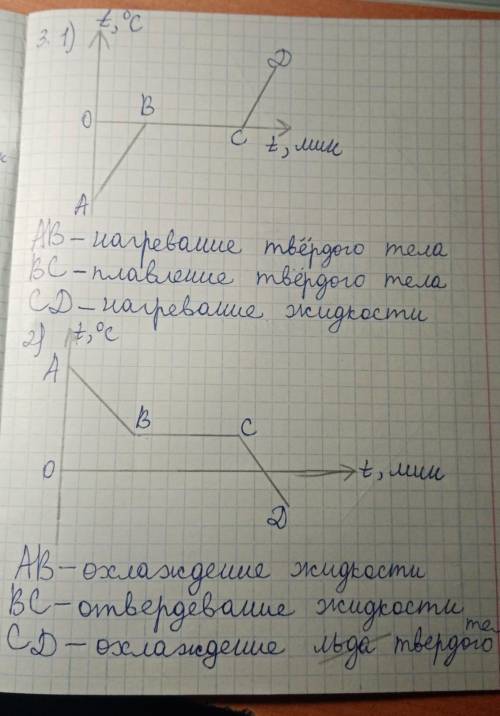 3. 1) t,°C
D
B
0
C
t, мин
A
AB – нагревание твёрдого тела
BC – плавление твёрдого тела
CD – нагревание жидкости
2) t,°C
A
B
C
0
t, мин
D
AB – охлаждение жидкости
BC – отвердевание жидкости
CD – охлаждение льда твердого те